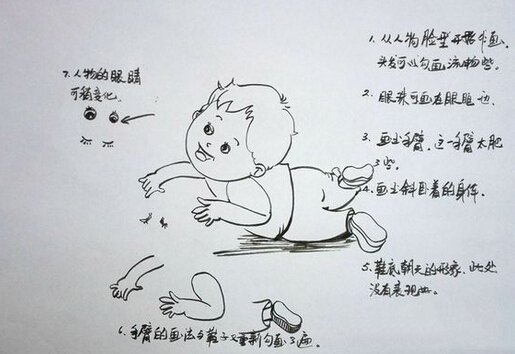 1. 从人物脸型开始作画,
头发可以勾画流畅些.
2. 眼珠可画在眼脸边.
3. 画出手臂, 这一手臂太肥
了些.
4. 画出斜卧着的身体.
5. 鞋底朝天的形象, 此处
没有表现出.
6. 手臂的画法与鞋子又重新勾画了遍.
7. 人物的眼睛
可稍变化.